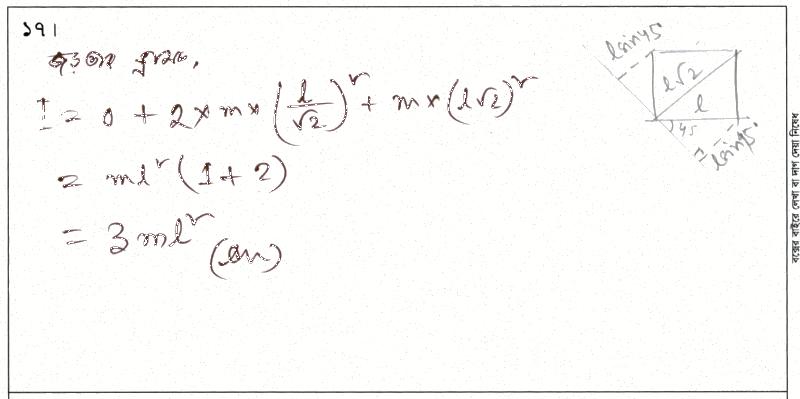 ১৭।
জড়তার ভ্রামক,
I = 0 + 2 × m × (l/√2)² + m × (l√2)²
= ml² (1 + 2)
= 3 ml² (Ans)
l sin 45°
l√2
l
45
l sin 45°
বক্সের বাইরে লেখা বা দাগ দেয়া নিষেধ